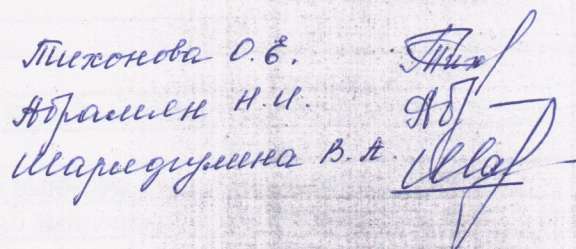 Тихонова О.Е. Тих
Абрамян Н.И. Аб
Шарифулина В.А. Шар